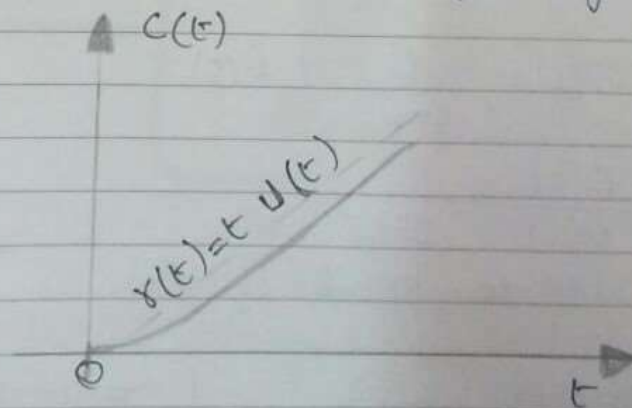 C(t)
r(t)=t U(t)
0
t